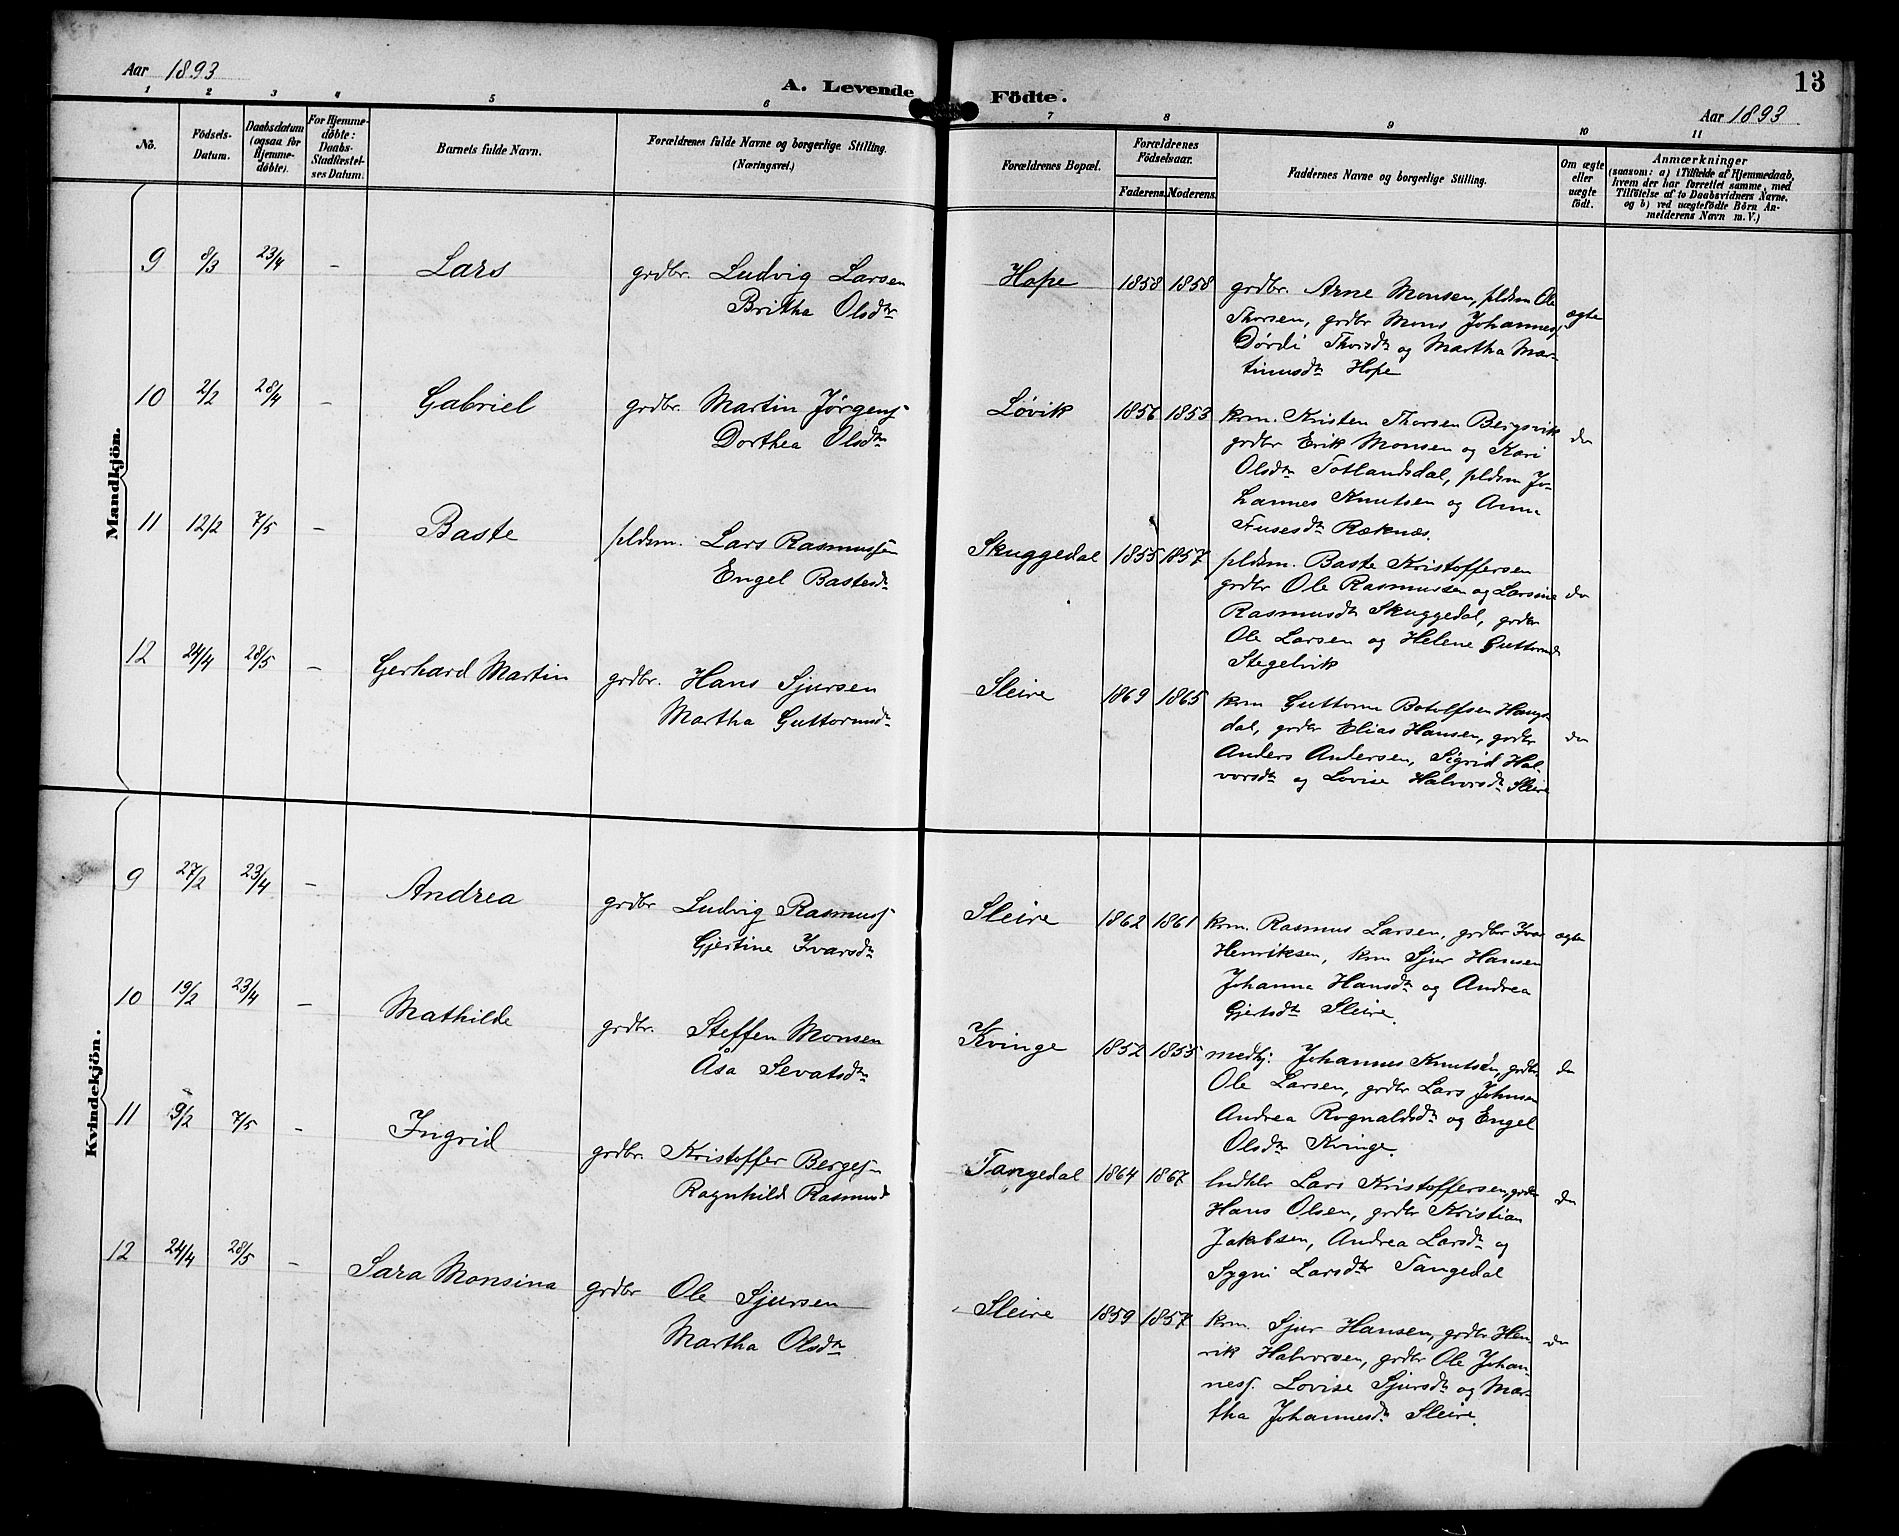 Aar 1893
A. Levende Födte.
13
Aar 1893
1 2 3 4 5 6 7 8 9 10 11
No.
Födsels-Datum.
Daabsdatum (ogsaa for Hjemme-döbte).
For Hjemme-döbte: Daabs-Stadfæstel-ses Datum.
Barnets fulde Navn.
Forældrenes fulde Navne og borgerlige Stilling. (Næringsvei.)
Forældrenes Bopæl.
Forældrenes Födselsaar.
Faderens. Moderens.
Faddernes Navne og borgerlige Stilling.
Om ægte eller uægte födt.
Anmærkninger
(saasom: a) i Tilfælde af Hjemmedaab,
hvem der har forrettet samme, med
Tilföielse af to Daabsvidners Navne,
og b) ved uægtefödte Börn An-
melderens Navn m. V.)
Mandkjön.
9 8/3 23/4 – Lars grdbr. Ludvig Larsen
Britha Olsdtr
Hope 1858 1858 grdbr. Arne Monsen, pldsm Ole
Thorsen, grdbr Mons Johannesf. ægte
Dørdi Thorsdtr og Martha Mar-
tinusdtr Hope
10 2/2 28/4 – Gabriel grdbr. Martin Jørgensf
Dorthea Olsdtr
Løvik 1856 1853 krm. Kristen Thorsen Bergsvik
grdbr Erik Monsen og Kari do
Olsdtr Totlandsdal, pldsm Jo-
hannes Knutsen og Anna
Fusesdtr Ræknæs.
11 12/2 7/5 – Baste pldsm. Lars Rasmussen
Engel Bastesdtr
Skuggedal 1855 1857 pldsm. Baste Kristoffersen
grdbr Ole Rasmussen og Larsine do
Rasmusdtr Skuggedal, grdbr
Ole Larsen og Helene Guttormsd
Stegelvik
12 24/4 28/5 – Gerhard Martin grdbr. Hans Sjursen
Martha Guttormsdtr
Sleire 1869 1865 krm Guttorm Botolfsen Haugs-
dal, grdbr Elias Hansen, grdbr do
Anders Andersen, Sigrid Hal-
vorsdtr og Lovise Halvorsdtr Sleire
Kvindekjön.
9 27/2 23/4 – Andrea grdbr Ludvig Rasmusf
Gjertine Ivarsdtr
Sleire 1862 1861 krm. Rasmus Larsen, grdbr Ivar ægte
Henriksen, krm Sjur Hansen
Johanna Hansdtr og Andrea
Gjertsdtr Sleire.
10 19/2 23/4 – Mathilde grdbr. Steffen Monsen
Åsa Sevatsdtr
Kvinge 1852 1855 medhj: Johannes Knutsen, grdbr do
Ole Larsen, grdbr Lars Johnsen
Andrea Rognaldsdtr og Engel
Olsdtr Kvinge.
11 9/2 7/5 – Ingrid grdbr. Kristoffer Bergesen
Ragnhild Rasmusd
Tangedal 1864 1867 Lars Kristoffersen, grdbr do
Hans Olsen, grdbr Kristian
Jakobsen, Andrea Larsdtr og
Sygni Larsdtr Tangedal
12 24/4 28/5 – Sara Monsina grdbr Ole Sjursen
Martha Olsdtr
Sleire 1859 1857 krm. Sjur Hansen, grdbr Hen- do
rik Halvorsen, grdbr Ole Johan-
nesf. Lovise Sjursdtr og Mar-
tha Johannesdtr Sleire.